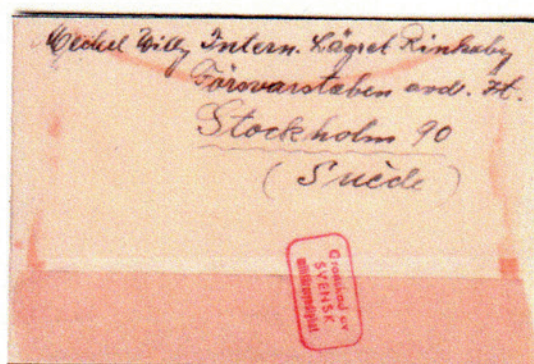 Willy Intern. Lägret Rinkaby
Försvarstaben avd. H.
Stockholm 90
(Suède)
Granskad av
SVENSK
militärmyndighet